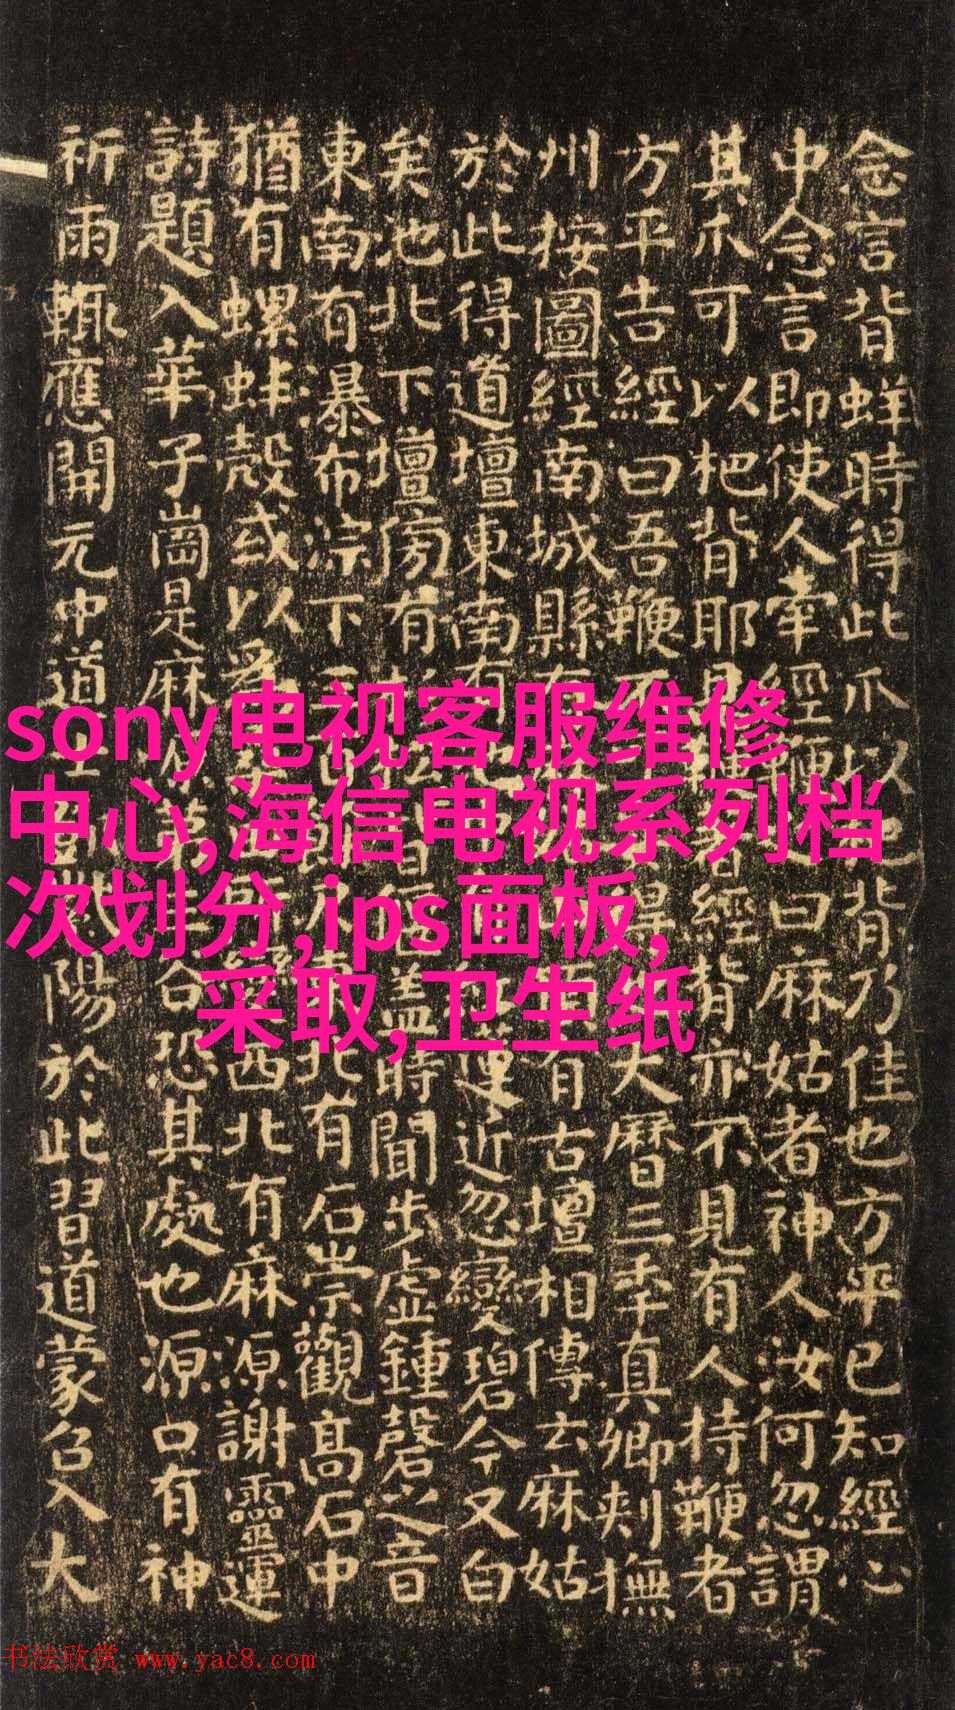 念言背蛘時得此爪以背乃佳也方平已知經心
中念言即使人牽經鞭之曰麻姑者神人汝何忽謂
其爪可以杷背耶見鞭著經背亦不見有人持鞭者
方平告經曰吾鞭不得大曆三年真卿刺撫
州按圖經南城縣有有古壇相傳云麻姑
於此得道壇東南有池蓮近忽變碧今又白
矣池北下壇傍有松皆偃蓋時聞步虛鍾磬之音
東南有瀑布淙下三百北有石崇觀高石中
猶有螺蚌殼或以為西北有麻源謝靈運
詩題入華子崗是麻源第谷恐其處也源口有神
祈雨輒應開元中道士陽於此習道蒙召入大
sony电视客服维修
中心,海信电视系列档
次划分,ips面板,
采取,卫生纸
书法欣赏 www.yac8.com